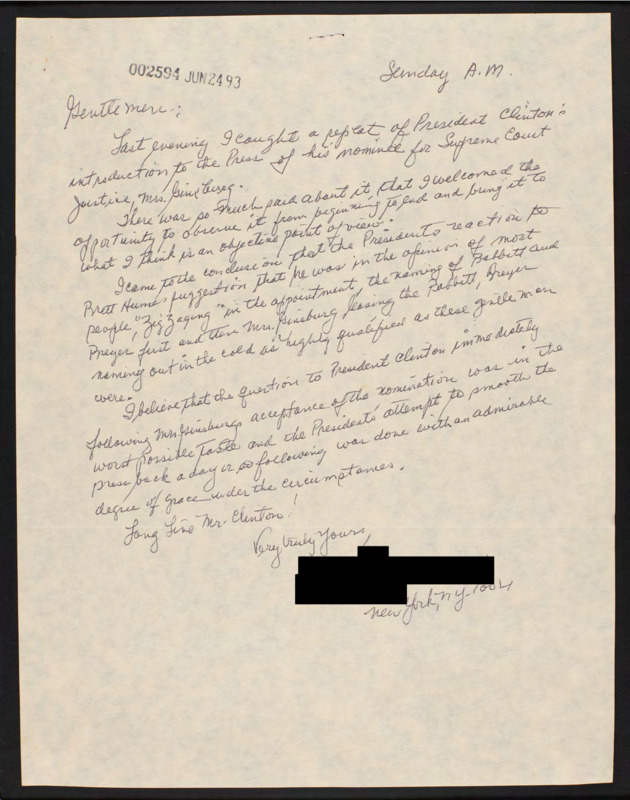 002594 JUN 24 93
Sunday A.M.
Gentlemen:;
Last evening I caught a repeat of President Clinton's
introduction to the Press of his nominee for Supreme Court
Justice, Mrs. Ginsburg.
There was so much said about it, that I welcomed the
opportunity to observe it from beginning to end and bring it to
what I think is an objective point of view.
I came to the conclusion that the President's reaction to
Brett Humes suggestion that he was in the opinion of most
people, "Zig Zaging" in the appointment, the naming of Babbitt and
Breyer first and then Mrs. Ginsburg, leaving the Babbitt, Breyer
naming out in the cold as highly qualified as these gentleman
were.
I believe that the question to President Clinton immediately
following Mrs Ginsburgs acceptance of the nomination was in the
worst possible taste and the President's attempt to smooth the
press back a day or so following was done with an admirable
degree of grace under the circumstances.
Long Live Mr. Clinton!
Very truly yours,
New York, NY.